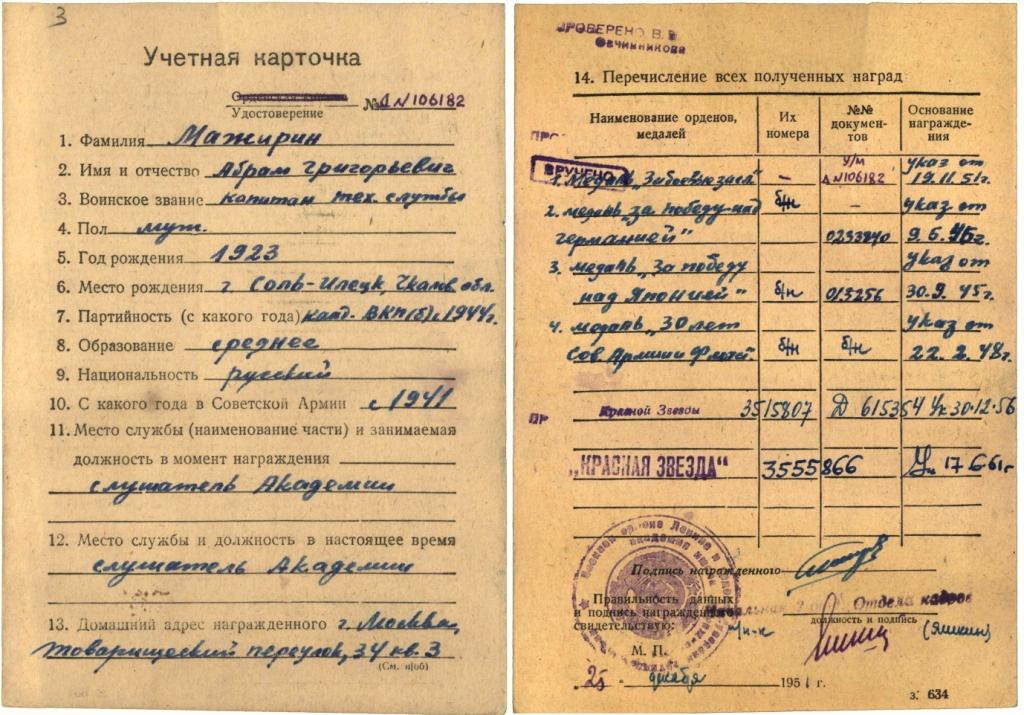 3
Учетная карточка
Удостоверение № Д N 106182
1. Фамилия Мажирин
2. Имя и отчество Абрам Григорьевич
3. Воинское звание капитан тех. службы
4. Пол муж.
5. Год рождения 1923
6. Место рождения г. Соль-Илецк, Чкалов. обл.
7. Партийность (с какого года) канд. ВКП(б) с 1944г.
8. Образование среднее
9. Национальность русский
10. С какого года в Советской Армии с 1941
11. Место службы (наименование части) и занимаемая
должность в момент награждения
слушатель Академии
12. Место службы и должность в настоящее время
слушатель Академии
13. Домашний адрес награжденного г. Москва,
Товарищеский переулок, 34 кв. 3
(См. н/об)
ПРОВЕРЕНО В.
Овчинникова
14. Перечисление всех полученных наград
Наименование орденов, медалей
Их номера
№№ документов
Основание награждения
ВРУЧЕНО
1. Медаль „За боевые засл." – У/м Д N 106182 указ от 19.11.51г.
2. медаль „за победу над б/н – указ от
германией" 0233840 9.5.45г.
3. медаль „За победу указ от
над Японией" б/н 013256 30.9.45г.
4. медаль „30 лет указ от
Сов Армии и Флота б/н б/н 22.2.48г.
ПР
Красной Звезды 3515807 Д 615354 Ук 30.12.56
„КРАСНАЯ ЗВЕЗДА" 3555866 Ук 17 6.61г
Подпись награжденного
Правильность данных
и подпись награжденного
свидетельствую:
Отдела кадров
должность и подпись
(Яшкин)
М. П.
"25" декабря 1951 г.
з. 634